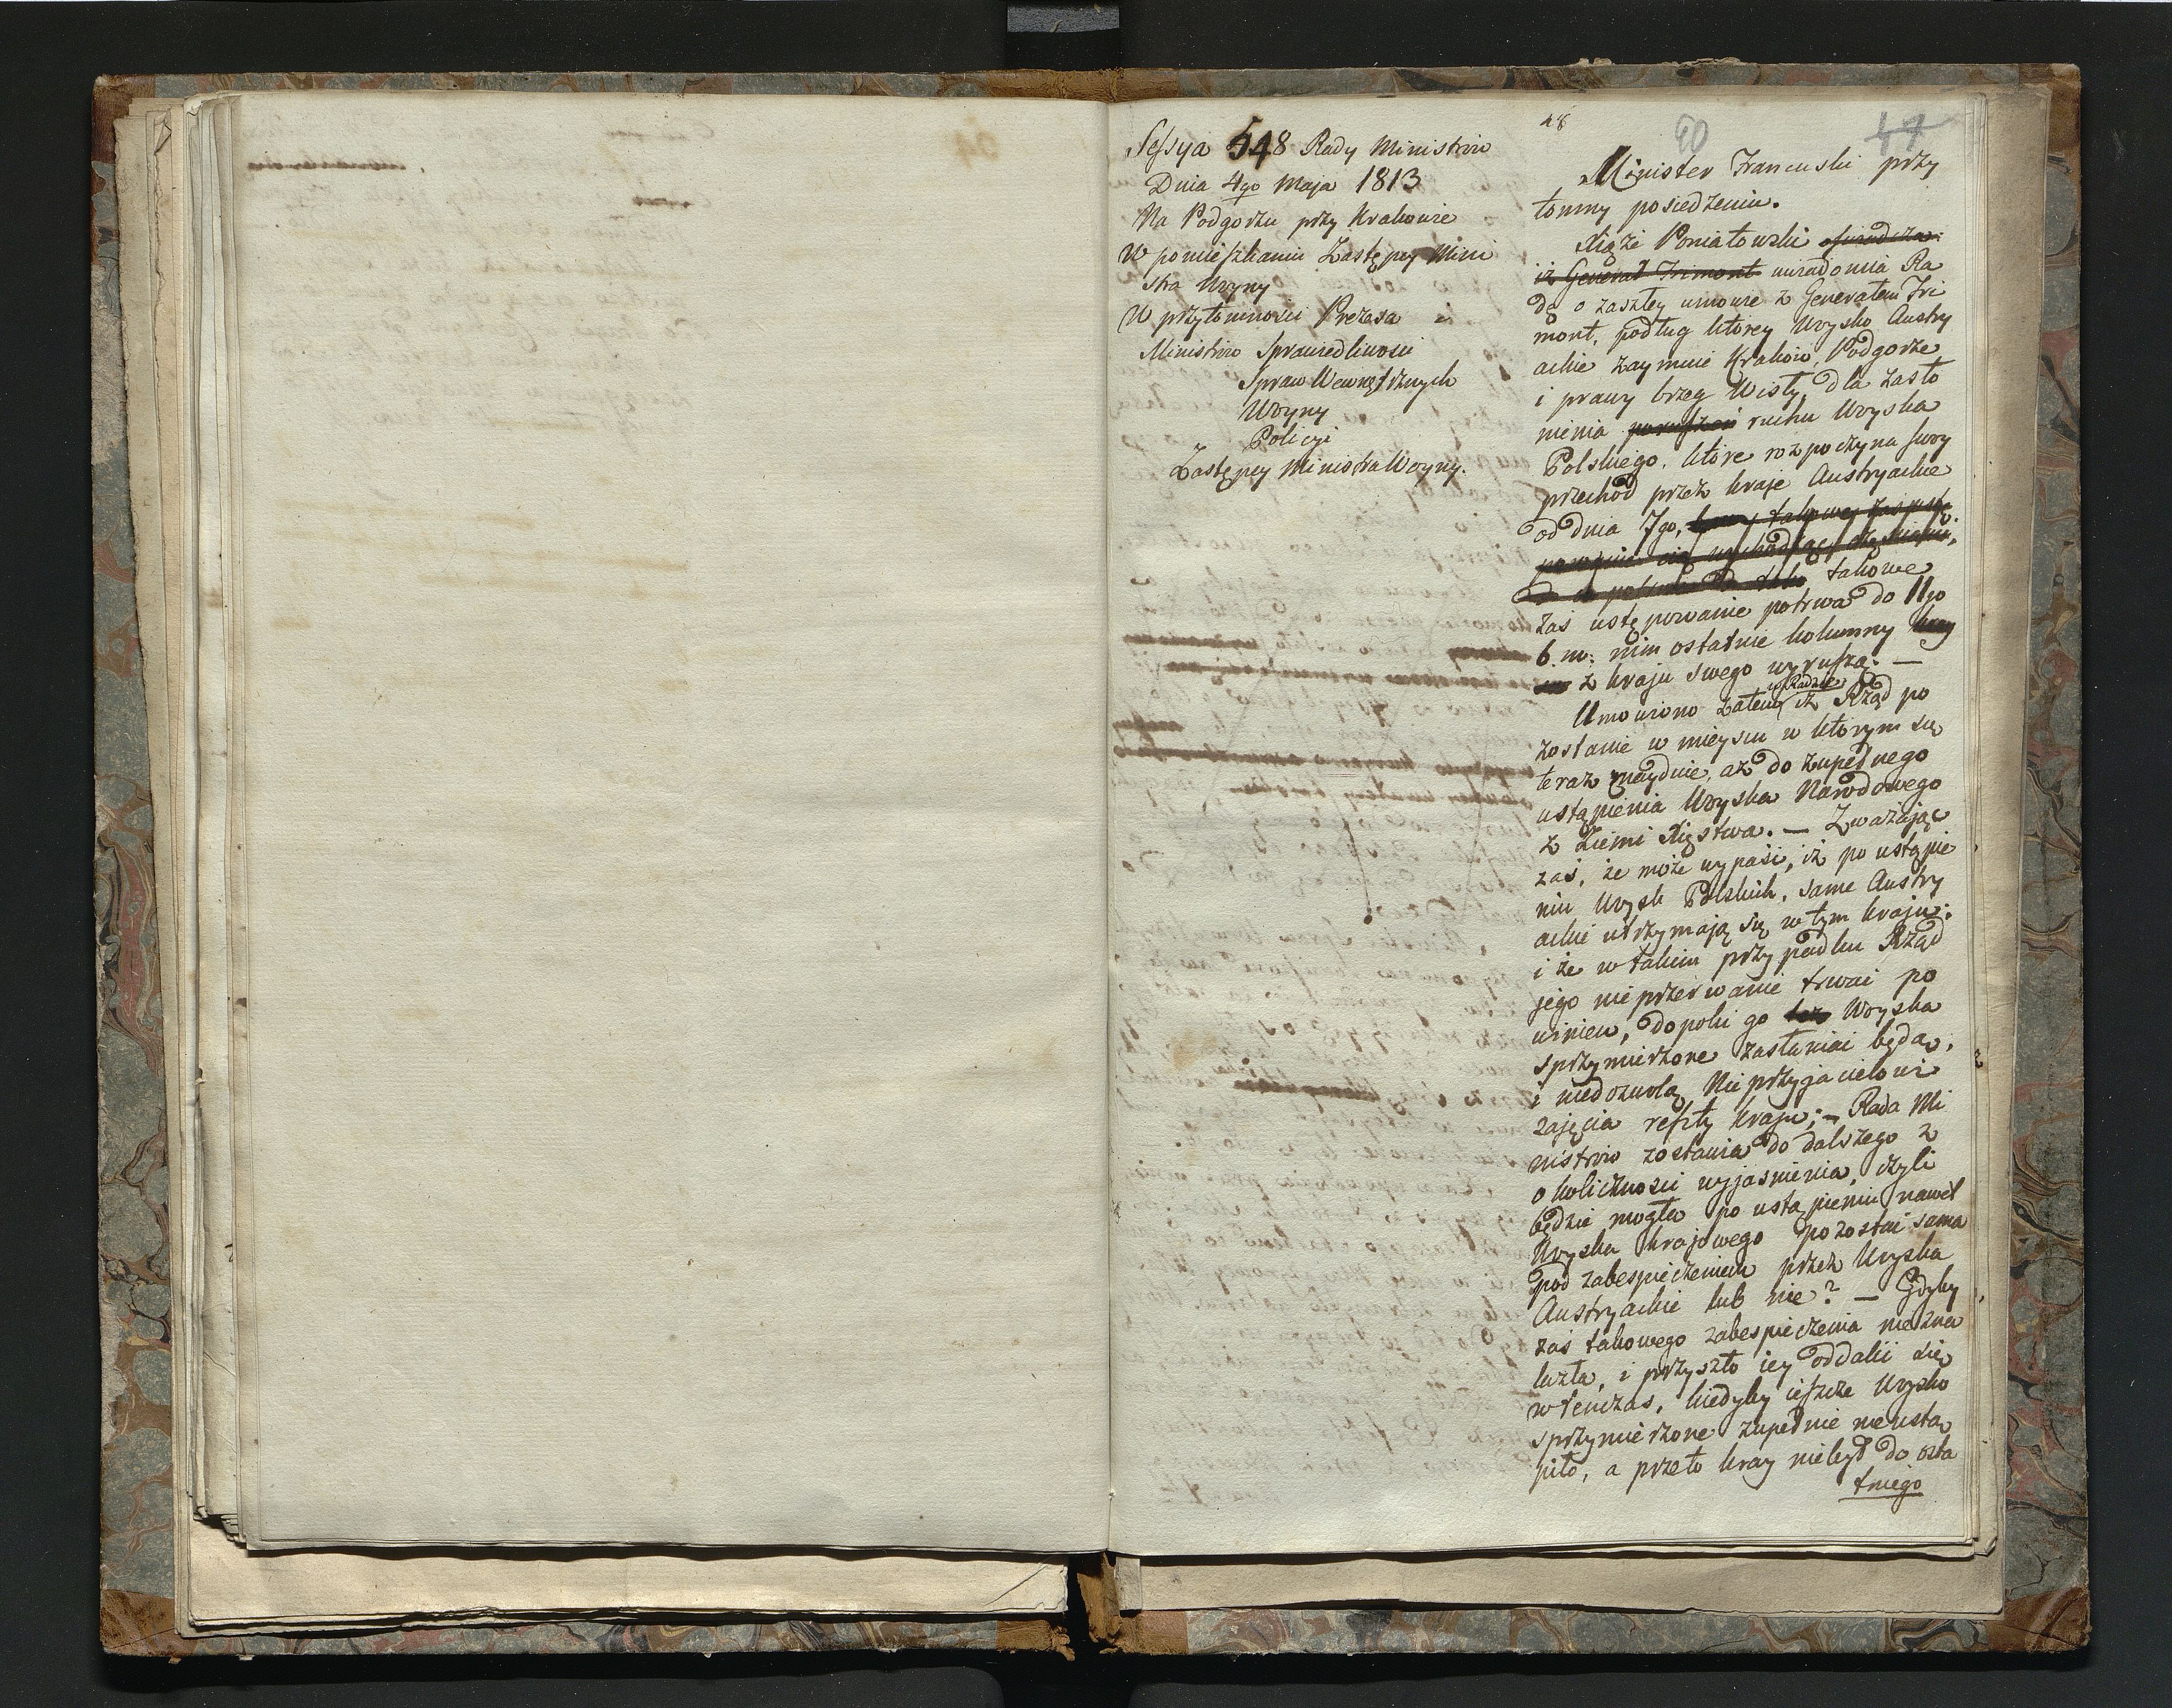 Sessya 548 Rady Ministrow
Dnia 4go Maja 1813
Na Podgorzu przy Krakowie
W pomieszkaniu Zastępcy Mini
stra Woyny
W przytomnosci Prezesa i
Ministrow Sprawiedliwosci
Spraw Wewnętrznych
Woyny
Policyi
Zastępcy Ministra Woyny.
48
60
47
Minister Francuski przy
tomny posiedzeniu.
Xiąże Poniatowski oswiadcza
iż Generał Frimont uwiadomia Ra
dę o zaszłey umowie z Generałem Fri
mont, podług ktorey Woysko Austry
ackie zaymuie Krakow, Podgorze
i prawy brzeg Wisły, dla zasło
nienia poruszeń ruchu Woyska
Polskiego, ktore rozpoczyna swoy
przechod przez kraje Austryackie
od dnia 7go,
takowe
zaś ustępowanie potrwa do 11go
b. m: nim ostatnie kolumny
z kraju swego wyruszą. —
Umowiono zatem w Radzie iż Rząd po
zostanie w mieyscu w ktorym się
teraz znayduie, aż do zupełnego
ustąpienia Woyska Narodowego
z Ziemi Xięstwa. — Zważając
zaś, że może wypaść, iż po ustąpie
niu Woysk Polskich, same Austry
ackie utrzymają się w tym kraju;
i że w takim przypadku Rząd
jego nieprzerwanie trwać po
winien, dopoki go Woyska
sprzymierzone zasłaniać będą,
i niedozwolą Nieprzyjacielowi
zajęcia reszty kraju; — Rada Mi
nistrow zostawia do dalszego z
okoliczności wyjasnienia, czyli
będzie mogła po ustąpieniu nawet
Woyska krajowego pozostać sama
pod zabespieczeniem przez Woyska
Austryackie lub nie? — Gdyby
zaś takowego zabespieczenia niezna
lazła, i przyszło iey oddalić się
wtenczas, kiedyby ieszcze Woysko
sprzymierzone zupełnie nieustą
piło, a przeto kray niebył do osta
tniego